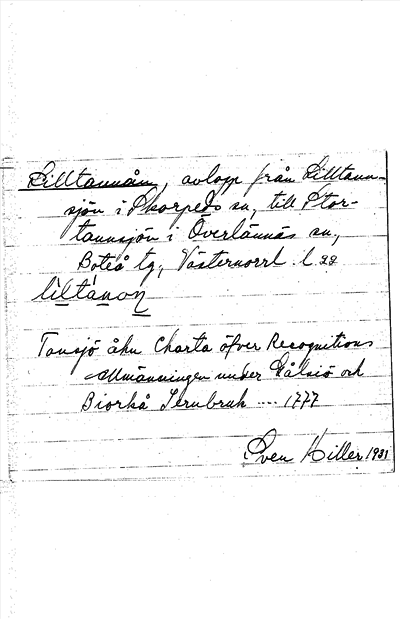 Lilltannån, avlopp från Lilltann-
sjön i Skorpeds sn, till Stor-
tannsjön i Överlännäs sn,
Boteå tg, Västernorrl. l.
liltánon
Tansjö åhn Charta öfver Recognitions
Allmänningen under Gålsiö och
Biorkå Jernbruk .... 1777
Sven Hiller 1931